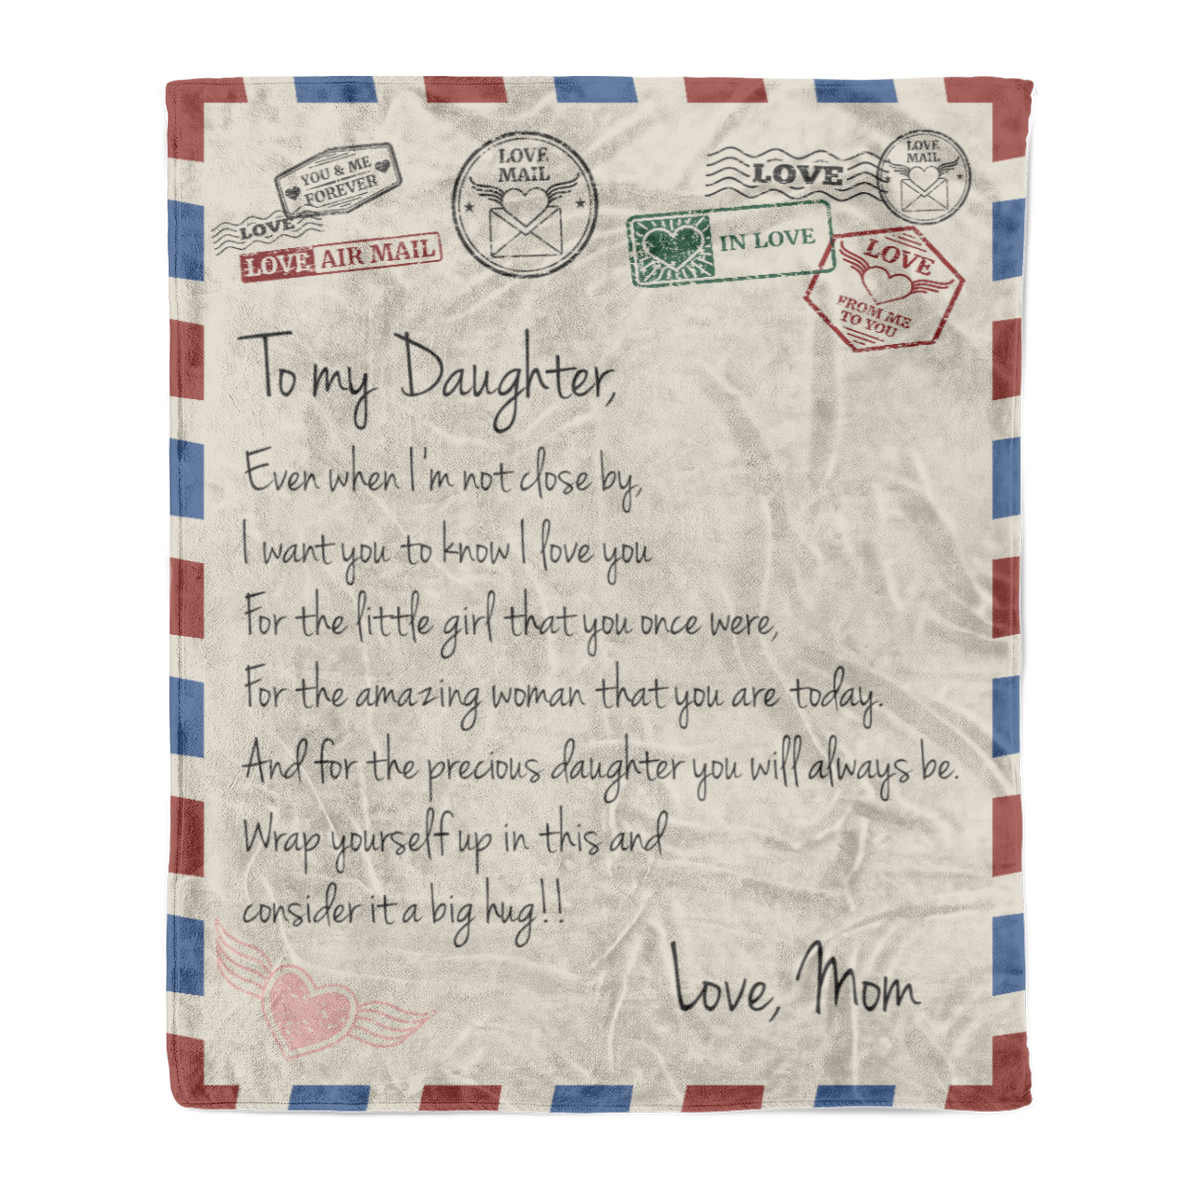 YOU & ME
FOREVER
LOVE
LOVE AIR MAIL
LOVE
MAIL
LOVE
LOVE
MAIL
IN LOVE
LOVE
FROM ME
TO YOU
To my Daughter,
Even when I'm not close by,
I want you to know I love you
For the little girl that you once were,
For the amazing woman that you are today.
And for the precious daughter you will always be.
Wrap yourself up in this and
consider it a big hug!!
Love, Mom